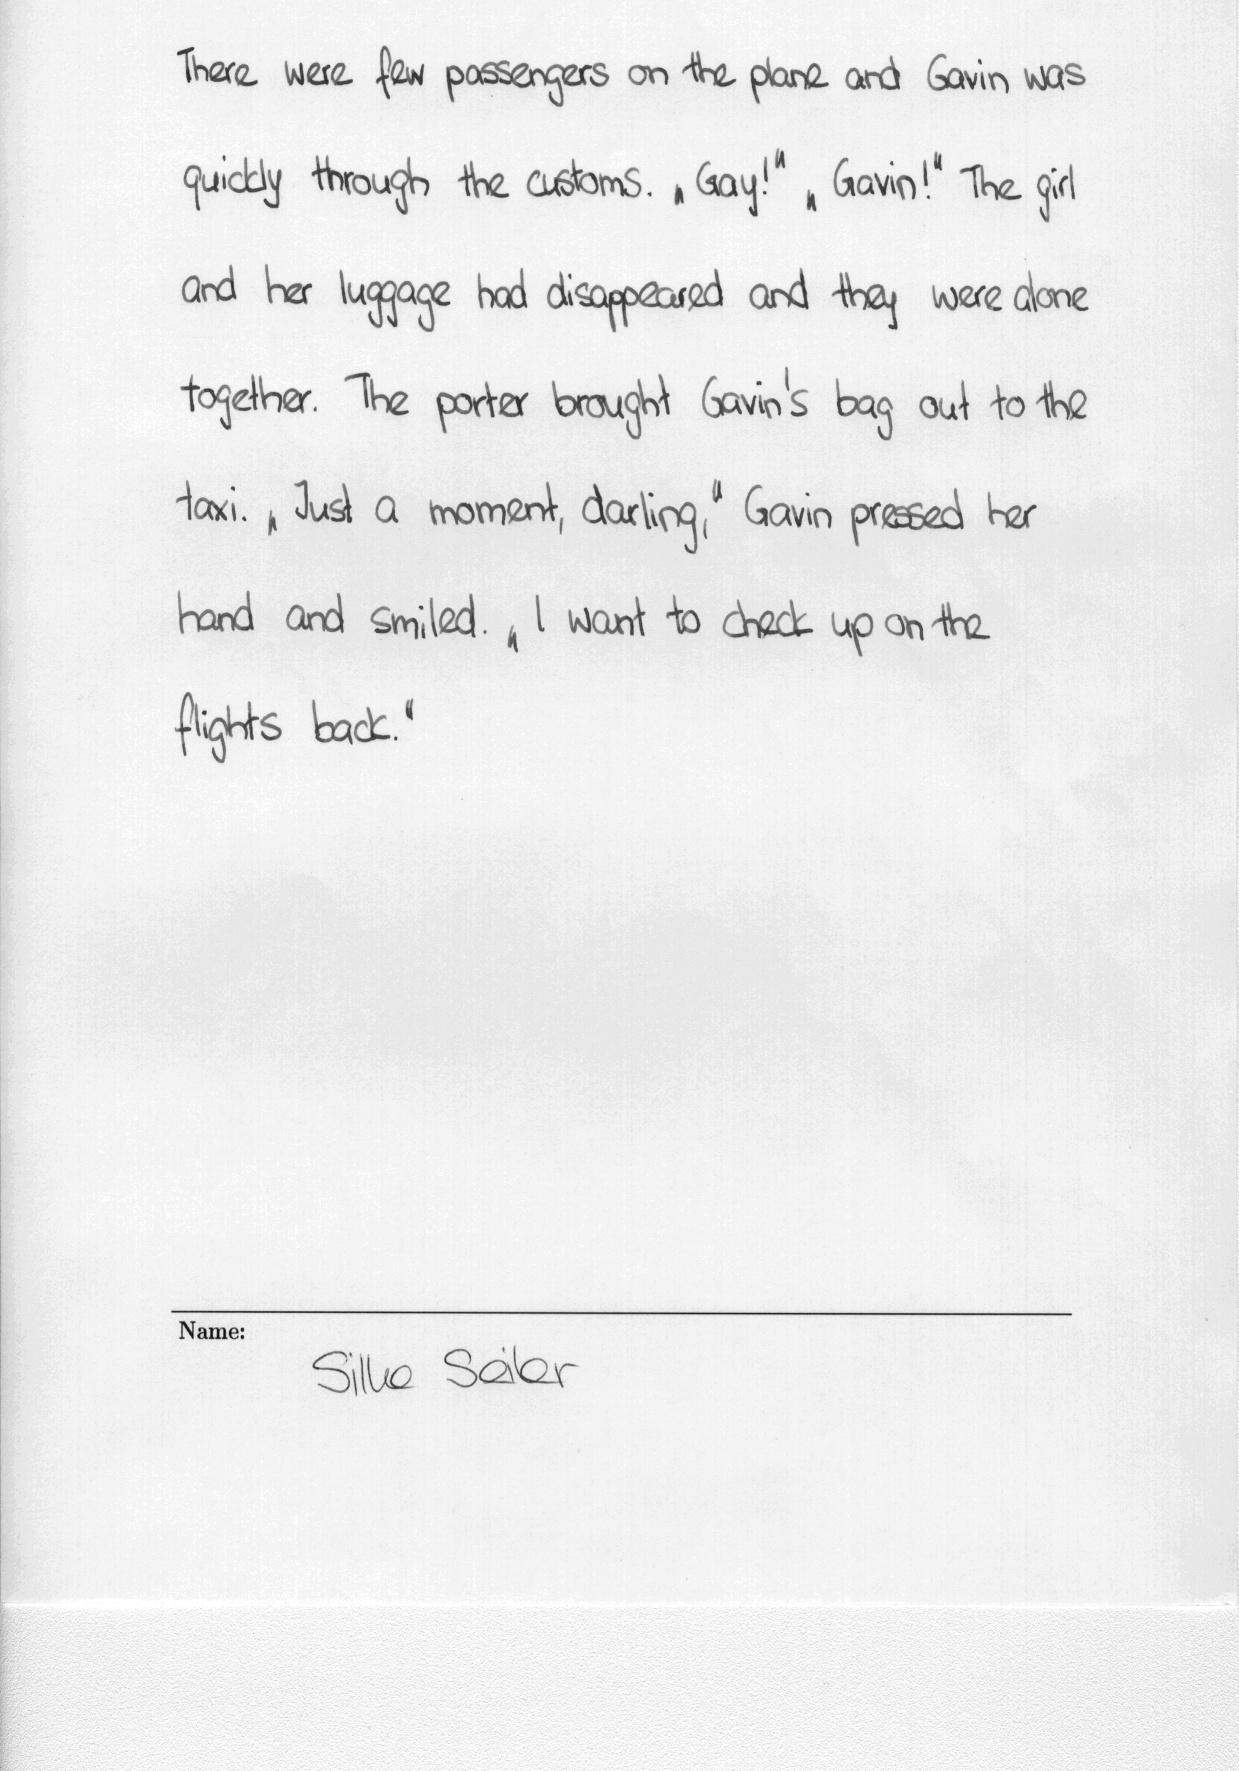 There were few passengers on the plane and Gavin was
quickly through the customs. „Gay!“ „Gavin!“ The girl
and her luggage had disappeared and they were alone
together. The porter brought Gavin's bag out to the
taxi. „Just a moment, darling,“ Gavin pressed her
hand and smiled. „I want to check up on the
flights back.“
Name:
Silke Seiler